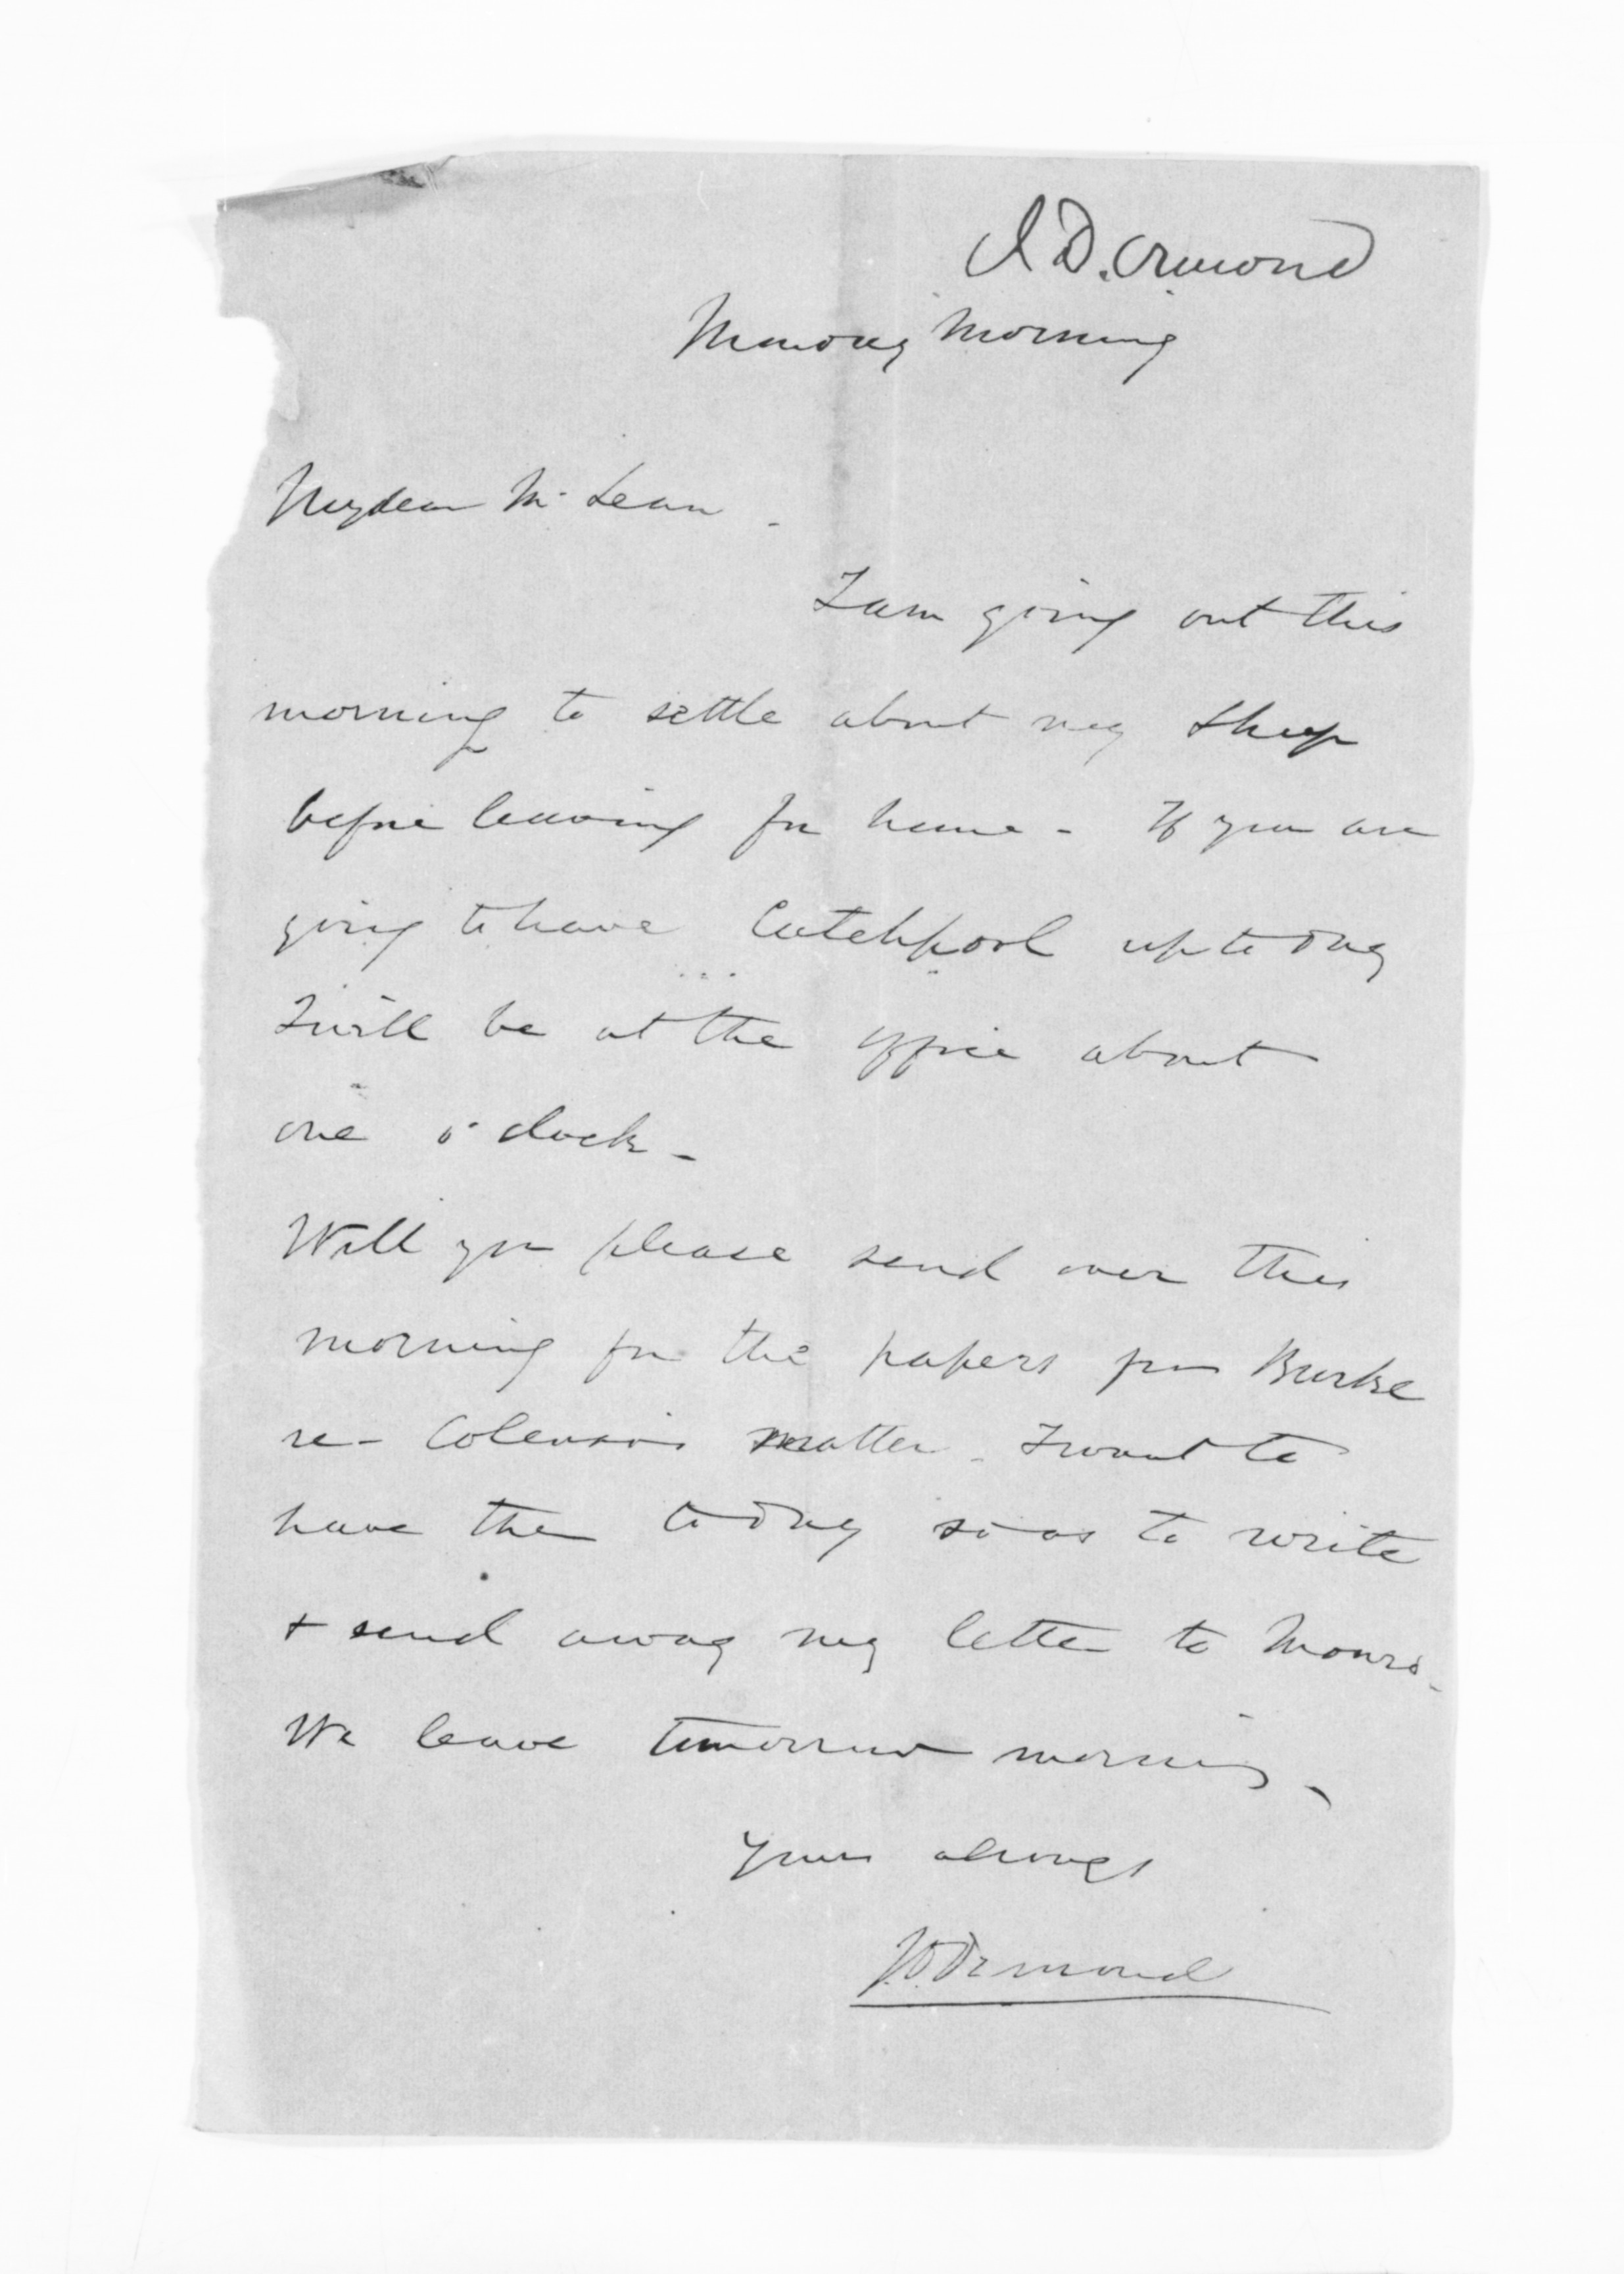 J D. Ormond
Monday Morning
My dear McLean -
I am going out this
morning to settle about my sheep
before leaving for home - If you are
going to have Catchpool up today
I will be at the office about
one o'clock -
Will you please send over this
morning for the papers from Burke
re - Colenso's matter - I want to
have them today so as to write
+ send away my letter to Monro -
We leave tomorrow morning -
Yours always
J.D. Ormond